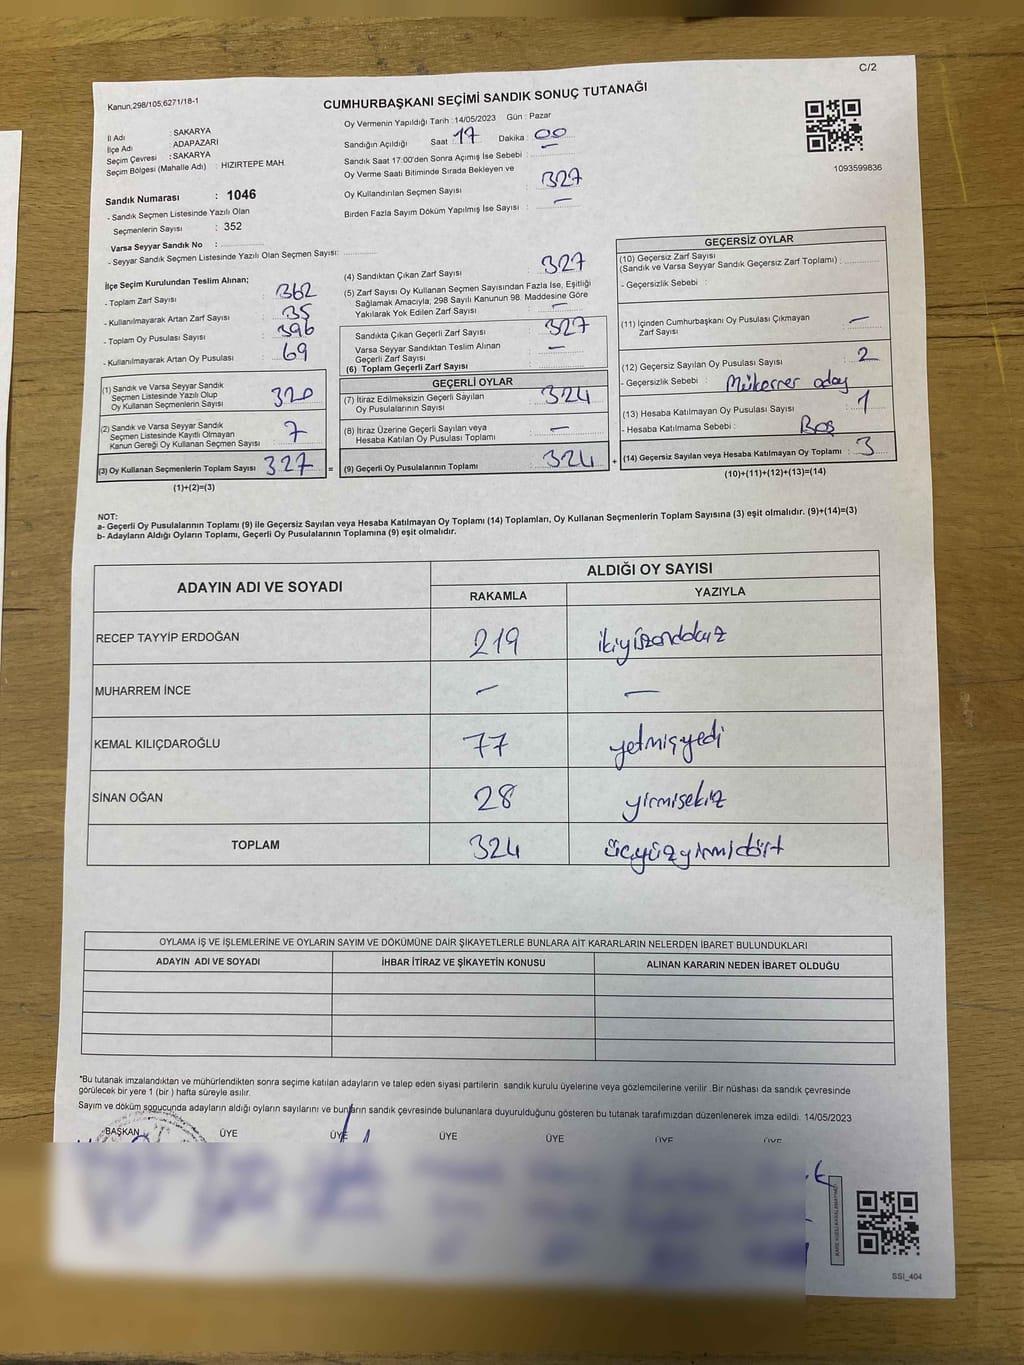 C/2
Kanun,298/105,6271/18-1
CUMHURBAŞKANI SEÇİMİ SANDIK SONUÇ TUTANAĞI
İl Adı : SAKARYA
İlçe Adı : ADAPAZARI
Seçim Çevresi : SAKARYA
Seçim Bölgesi (Mahalle Adı) : HIZIRTEPE MAH.
Sandık Numarası : 1046
- Sandık Seçmen Listesinde Yazılı Olan
Seçmenlerin Sayısı : 352
Varsa Seyyar Sandık No :
- Seyyar Sandık Seçmen Listesinde Yazılı Olan Seçmen Sayısı:
Oy Vermenin Yapıldığı Tarih : 14/05/2023 Gün : Pazar
Sandığın Açıldığı Saat : 17 Dakika : 00
Sandık Saat 17:00'den Sonra Açımış İse Sebebi :
Oy Verme Saati Bitiminde Sırada Bekleyen ve
Oy Kullandırılan Seçmen Sayısı : 327
Birden Fazla Sayım Döküm Yapılmış İse Sayısı : —
1093599836
İlçe Seçim Kurulundan Teslim Alınan;
- Toplam Zarf Sayısı : 362
- Kullanılmayarak Artan Zarf Sayısı : 35
- Toplam Oy Pusulası Sayısı : 396
- Kullanılmayarak Artan Oy Pusulası : 69
(1) Sandık ve Varsa Seyyar Sandık
Seçmen Listesinde Yazılı Olup
Oy Kullanan Seçmenlerin Sayısı : 320
(2) Sandık ve Varsa Seyyar Sandık
Seçmen Listesinde Kayıtlı Olmayan
Kanun Gereği Oy Kullanan Seçmen Sayısı : 7
(3) Oy Kullanan Seçmenlerin Toplam Sayısı : 327 =
(1)+(2)=(3)
(4) Sandıktan Çıkan Zarf Sayısı : 327
(5) Zarf Sayısı Oy Kullanan Seçmen Sayısından Fazla İse, Eşitliği
Sağlamak Amacıyla, 298 Sayılı Kanunun 98. Maddesine Göre
Yakılarak Yok Edilen Zarf Sayısı : —
Sandıkta Çıkan Geçerli Zarf Sayısı : 327
Varsa Seyyar Sandıktan Teslim Alınan
Geçerli Zarf Sayısı : —
(6) Toplam Geçerli Zarf Sayısı :
GEÇERLİ OYLAR
(7) İtiraz Edilmeksizin Geçerli Sayılan
Oy Pusulalarının Sayısı : 324
(8) İtiraz Üzerine Geçerli Sayılan veya
Hesaba Katılan Oy Pusulası Toplamı : —
(9) Geçerli Oy Pusulalarının Toplamı : 324 +
GEÇERSİZ OYLAR
(10) Geçersiz Zarf Sayısı
(Sandık ve Varsa Seyyar Sandık Geçersiz Zarf Toplamı) :
- Geçersizlik Sebebi :
(11) İçinden Cumhurbaşkanı Oy Pusulası Çıkmayan
Zarf Sayısı : —
(12) Geçersiz Sayılan Oy Pusulası Sayısı : 2
- Geçersizlik Sebebi : Mükerrer aday
(13) Hesaba Katılmayan Oy Pusulası Sayısı : 1
- Hesaba Katılmama Sebebi : Boş
(14) Geçersiz Sayılan veya Hesaba Katılmayan Oy Toplamı : 3
(10)+(11)+(12)+(13)=(14)
NOT:
a- Geçerli Oy Pusulalarının Toplamı (9) ile Geçersiz Sayılan veya Hesaba Katılmayan Oy Toplamı (14) Toplamları, Oy Kullanan Seçmenlerin Toplam Sayısına (3) eşit olmalıdır. (9)+(14)=(3)
b- Adayların Aldığı Oyların Toplamı, Geçerli Oy Pusulalarının Toplamına (9) eşit olmalıdır.
ADAYIN ADI VE SOYADI ALDIĞI OY SAYISI
RAKAMLA YAZIYLA
RECEP TAYYİP ERDOĞAN 219 ikiyüzondokuz
MUHARREM İNCE — —
KEMAL KILIÇDAROĞLU 77 yetmişyedi
SİNAN OĞAN 28 yirmisekiz
TOPLAM 324 üçyüzyirmidört
OYLAMA İŞ VE İŞLEMLERİNE VE OYLARIN SAYIM VE DÖKÜMÜNE DAİR ŞİKAYETLERLE BUNLARA AİT KARARLARIN NELERDEN İBARET BULUNDUKLARI
ADAYIN ADI VE SOYADI İHBAR İTİRAZ VE ŞİKAYETİN KONUSU ALINAN KARARIN NEDEN İBARET OLDUĞU
*Bu tutanak imzalandıktan ve mühürlendikten sonra seçime katılan adayların ve talep eden siyasi partilerin sandık kurulu üyelerine veya gözlemcilerine verilir .Bir nüshası da sandık çevresinde
görülecek bir yere 1 (bir ) hafta süreyle asılır.
Sayım ve döküm sonucunda adayların aldığı oyların sayılarını ve bunların sandık çevresinde bulunanlara duyurulduğunu gösteren bu tutanak tarafımızdan düzenlenerek imza edildi. 14/05/2023
BAŞKAN ÜYE ÜYE ÜYE ÜYE ÜYE ÜYE
SSI_404